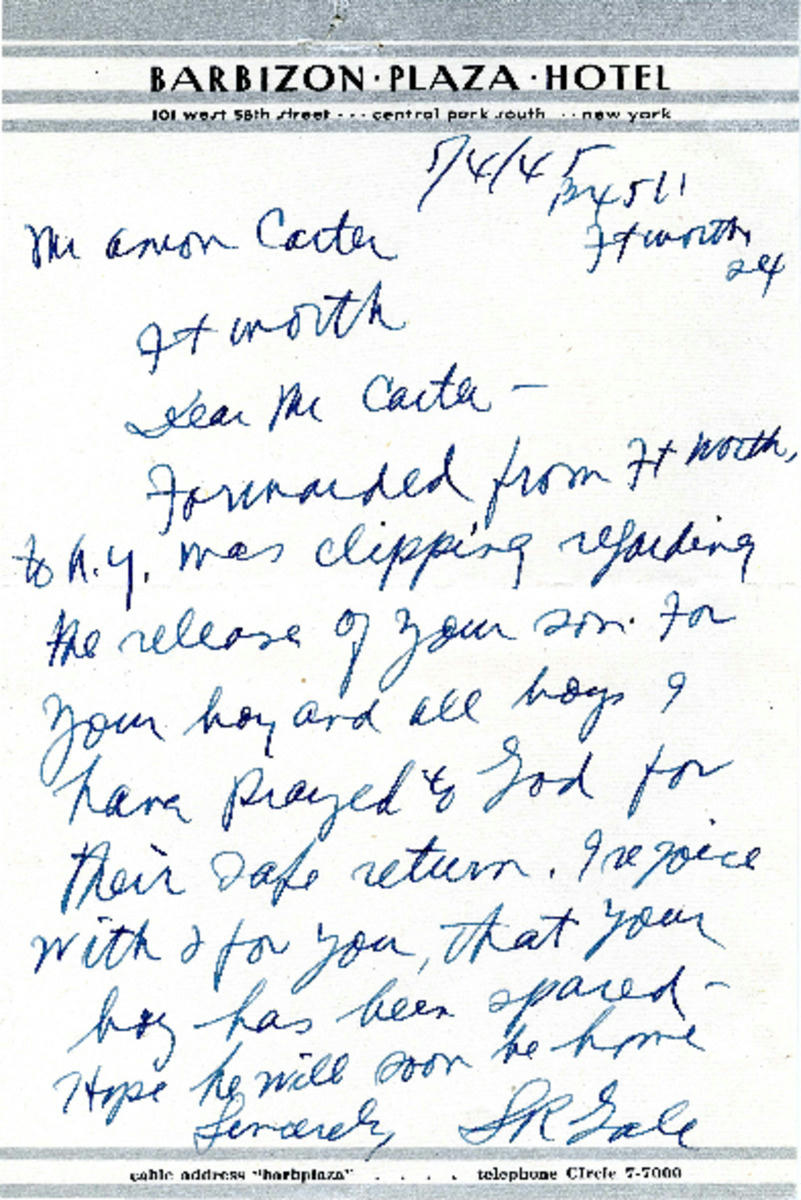 BARBIZON · PLAZA · HOTEL
101 west 58th street - - - central park south - - new york
5/4/45
Bx 4511
Ft Worth,
24
Mr Amon Carter
Ft Worth
Dear Mr Carter –
Forwarded from Ft Worth,
to N.Y. was clipping regarding
the release of your son. For
your boy and all boys I
have prayed to God for
their safe return. I rejoice
with & for you, that your
boy has been spared –
Hope he will soon be home
Sincerely, SR Gale
cable address "barbplaza" . . . . telephone CIrcle 7-7000